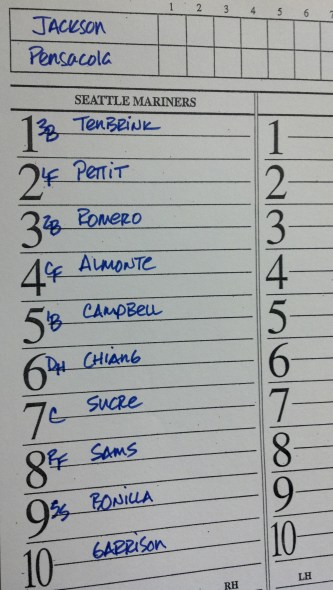 1 2 3 4 5 6 7
JACKSON
Pensacola
SEATTLE MARINERS
1 3B TENBRINK 1
2 LF PETTIT 2
3 2B ROMERO 3
4 CF ALMONTE 4
5 1B CAMPBELL 5
6 DH CHIANG 6
7 C SUCRE 7
8 RF SAMS 8
9 SS BONILLA 9
10 GARRISON 10
RH LH